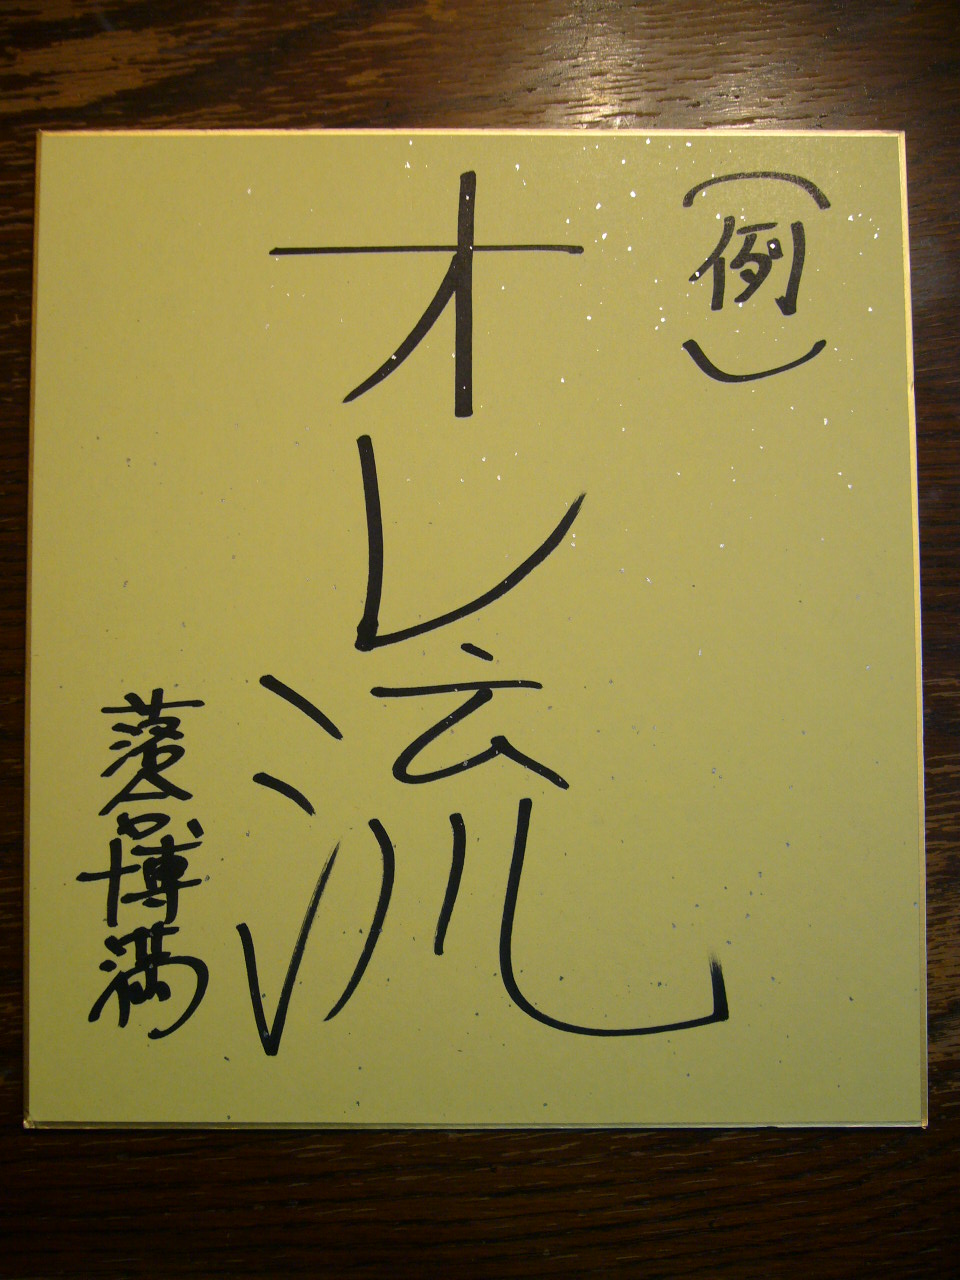 （例）
オレ流
落合博満